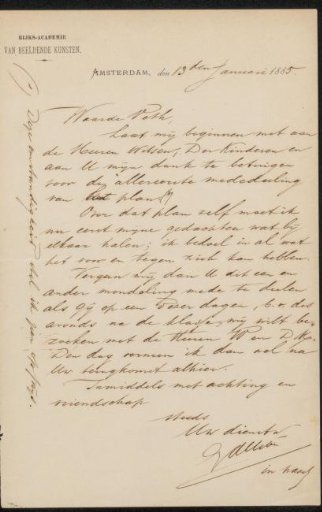 RIJKS-ACADEMIE
VAN BEELDENDE KUNSTEN.
AMSTERDAM, den 13den Januari 1885
Waarde Veth,
Laat mij beginnen met aan
de Heeren Witsen, Der Kinderen en
aan U mijn dank te betuigen
voor de allereerste mededeeling
van plan (*)
Over dat plan zelf moet ik
nu eerst mijne gedachten wat bij
elkaar halen; ik behoef in al wat
het voor en tegen zich kan hebben.
Vergun mij dan U dit een en
ander mondeling mede te deelen
als gij op een dezer dagen,
avonds na de klasse, mij wilt be-
zoeken met de Heeren W en D.K.
Den dag vernem ik dan wel na
Uw terugkomst alhier.
Inmiddels met achting en
vriendschap
steeds
Uw dienstv.
Allebé
in haast
(*) Deze omstandigheid stel ik zeer op prijs.